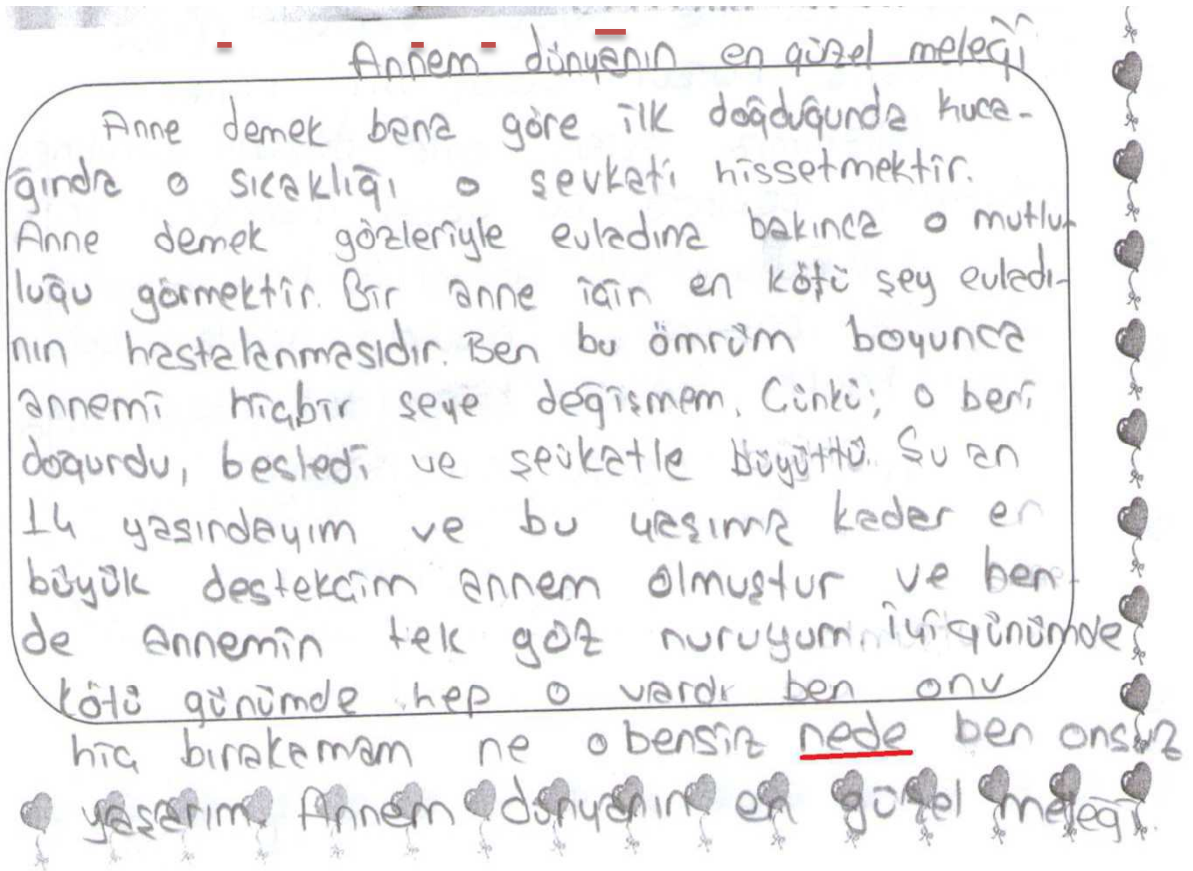 Annem dünyanın en güzel meleği
Anne demek bana göre ilk doğduğunda kuca-
ğında o sıcaklığı o şevkati hissetmektir.
Anne demek gözleriyle evladına bakınca o mutlu-
luğu görmektir. Bir anne için en kötü şey evladı-
nın hastalanmasıdır. Ben bu ömrüm boyunca
annemi hiçbir şeye değişmem. Çünkü; o beni
doğurdu, besledi ve şevkatle büyüttü. Şu an
14 yaşındayım ve bu yaşıma kadar en
büyük destekçim annem olmuştur ve ben
de annemin tek göz nuruyum. İyi günümde
kötü günümde hep o vardı ben onu
hiç bırakamam ne o bensiz nede ben onsuz
yaşarım. Annem dünyanın en güzel meleği.